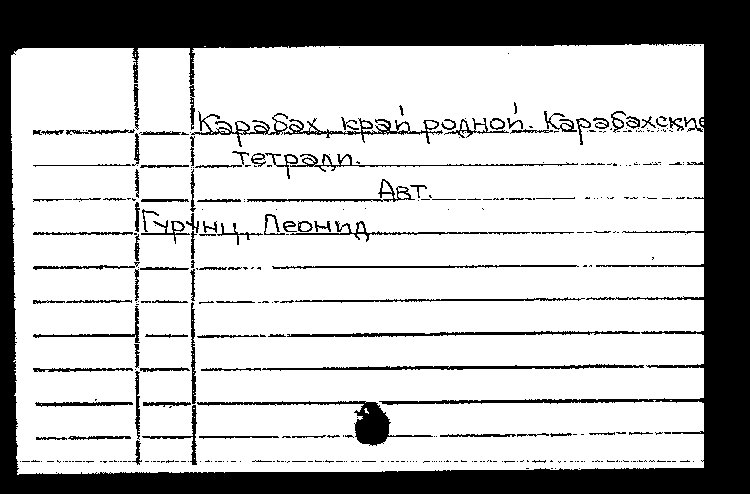 Карабах, край родной. Карабахские
тетради.
Авт.
Гурунц, Леонид